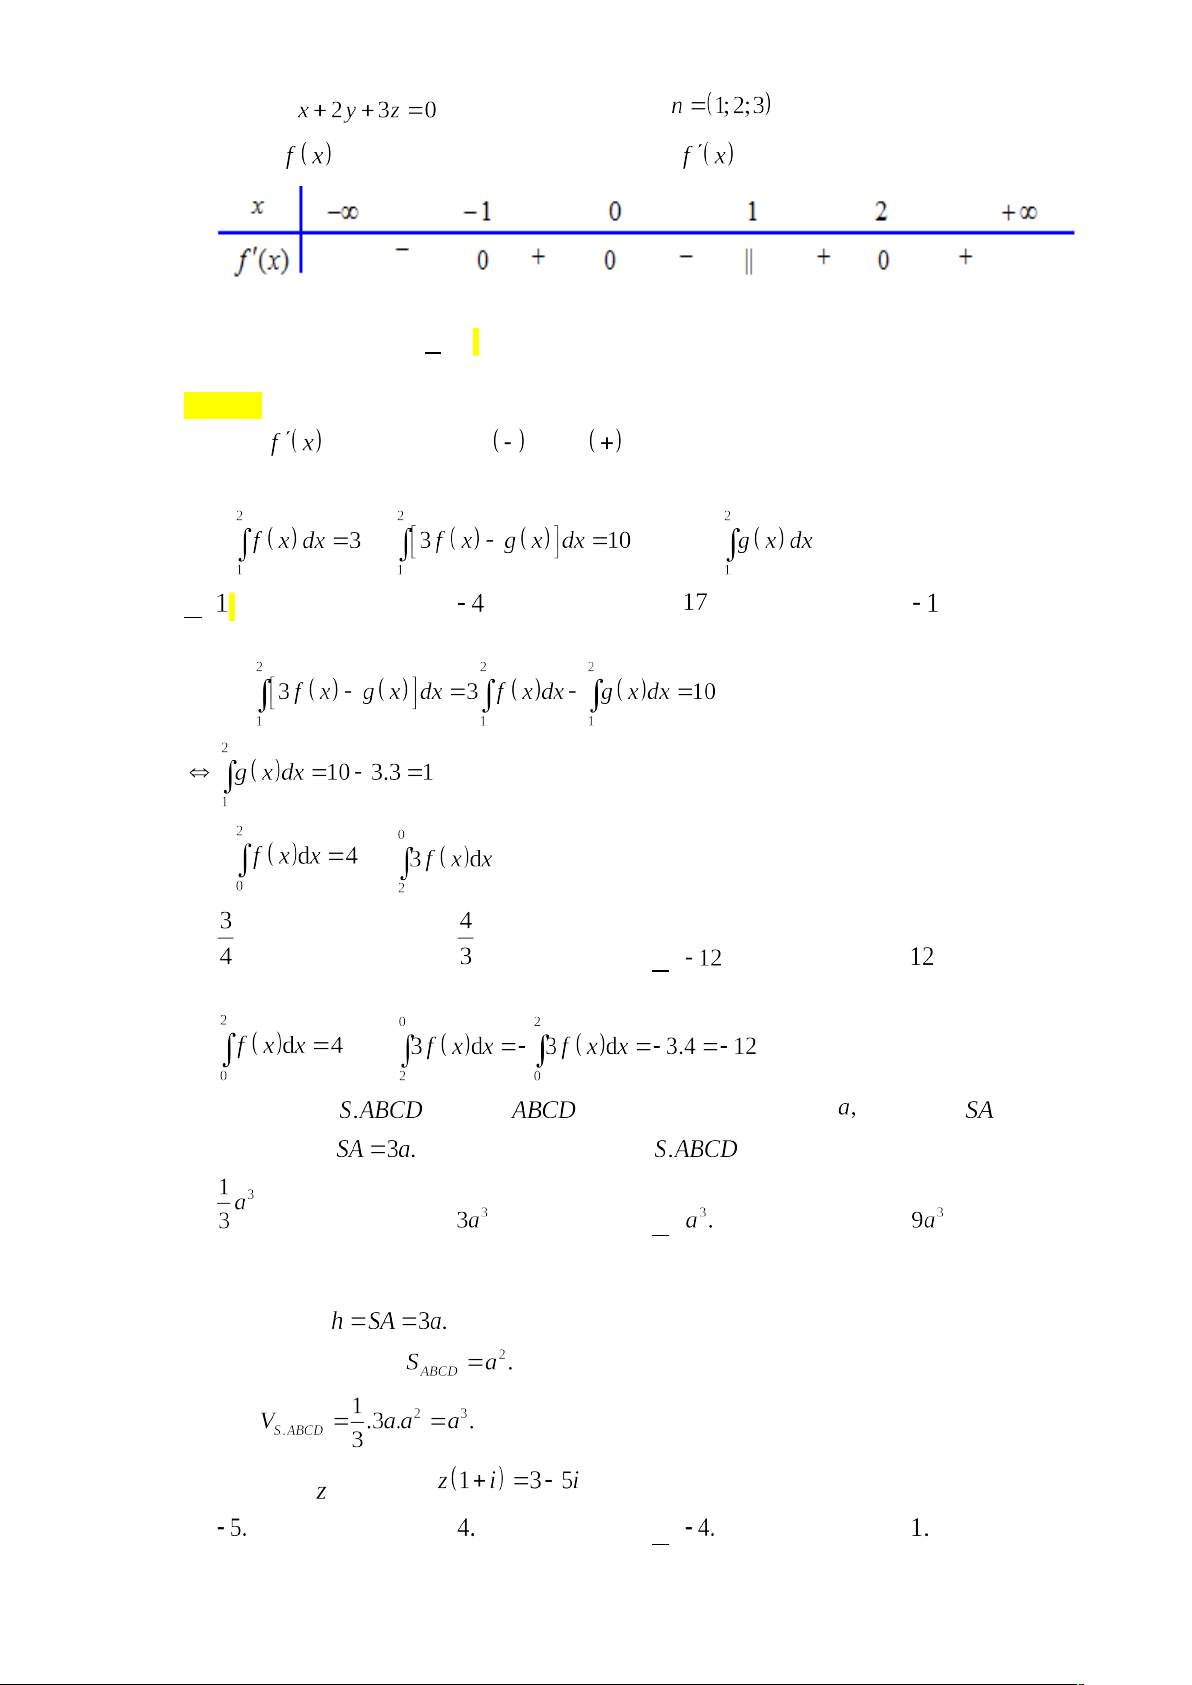 x + 2y + 3z = 0 n = (1; 2; 3)
f(x) f′(x)
x −∞ −1 0 1 2 +∞
f'(x) − 0 + 0 − || + 0 +
f′(x) (-) (+)
∫₁² f(x) dx = 3 ∫₁² [3f(x) - g(x)] dx = 10 ∫₁² g(x) dx
1 - 4 17 - 1
∫₁² [3f(x) - g(x)] dx = 3 ∫₁² f(x)dx - ∫₁² g(x)dx = 10
⇔ ∫₁² g(x)dx = 10 - 3.3 = 1
∫₀² f(x)dx = 4 ∫₂⁰ 3f(x)dx
3/4 4/3 - 12 12
∫₀² f(x)dx = 4 ∫₂⁰ 3f(x)dx = - ∫₀² 3f(x)dx = - 3.4 = - 12
S.ABCD ABCD a, SA
SA = 3a. S.ABCD
1/3 a³ 3a³ a³. 9a³
h = SA = 3a.
S_ABCD = a².
V_S.ABCD = 1/3 .3a.a² = a³.
z z(1 + i) = 3 - 5i
- 5. 4. - 4. 1.